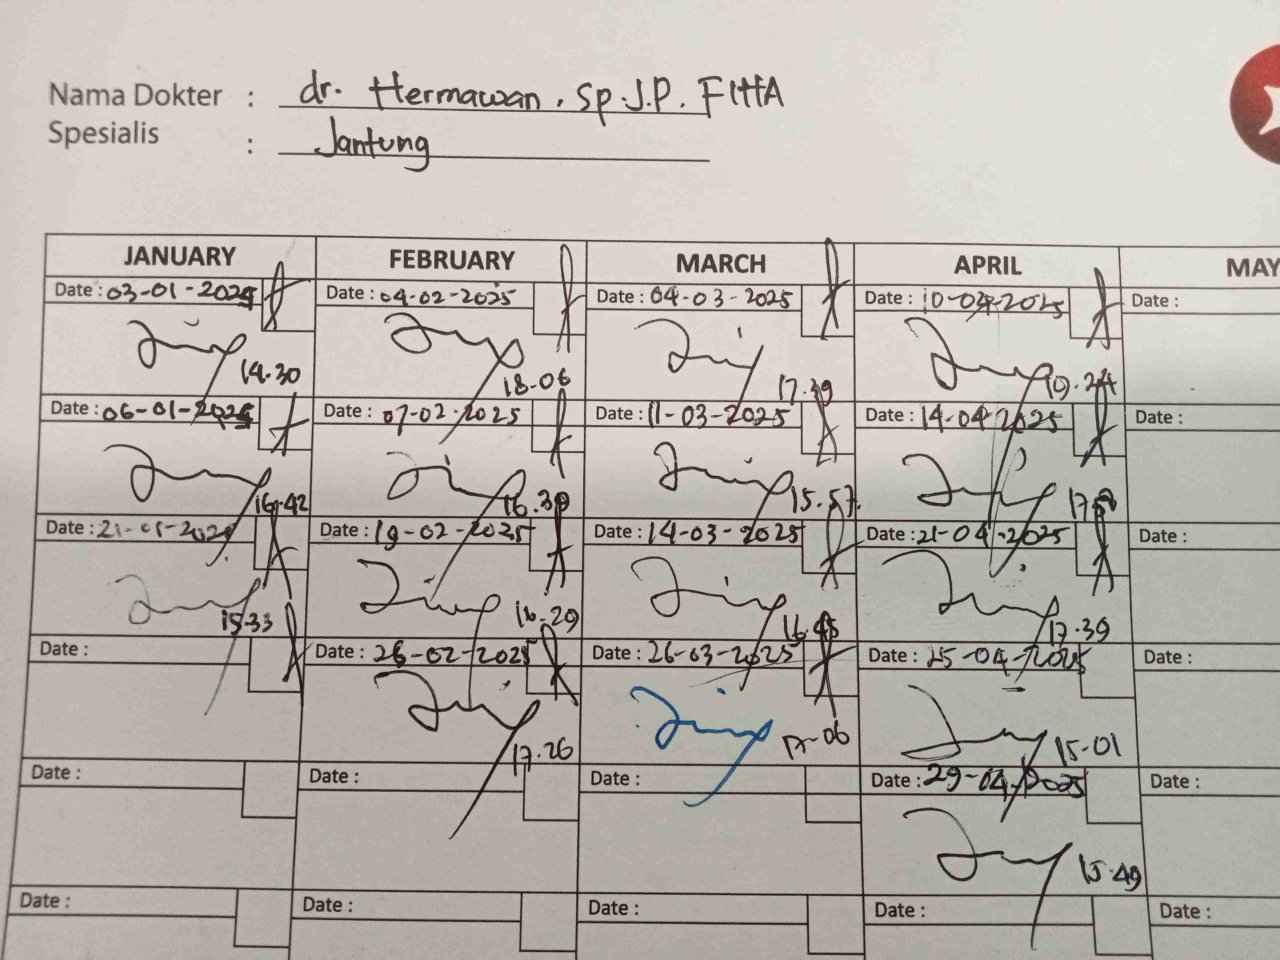 Nama Dokter : dr. Hermawan, Sp.J.P. FIHA
Spesialis : Jantung
JANUARY FEBRUARY MARCH APRIL MAY
Date : 03-01-2025 Date : 04-02-2025 Date : 04-03-2025 Date : 10-04-2025 Date :
14.30 18.06 17.39 19.24
Date : 06-01-2025 Date : 07-02-2025 Date : 11-03-2025 Date : 14-04-2025 Date :
16.42 16.39 15.57
Date : 21-01-2025 Date : 19-02-2025 Date : 14-03-2025 Date : 21-04-2025 Date :
15.33 16.29 16.45 17.39
Date : Date : 26-02-2025 Date : 26-03-2025 Date : 25-04-2025 Date :
17.26 17.06 15.01
Date : Date : Date : Date : 29-04-2025 Date :
15.49
Date : Date : Date : Date : Date :